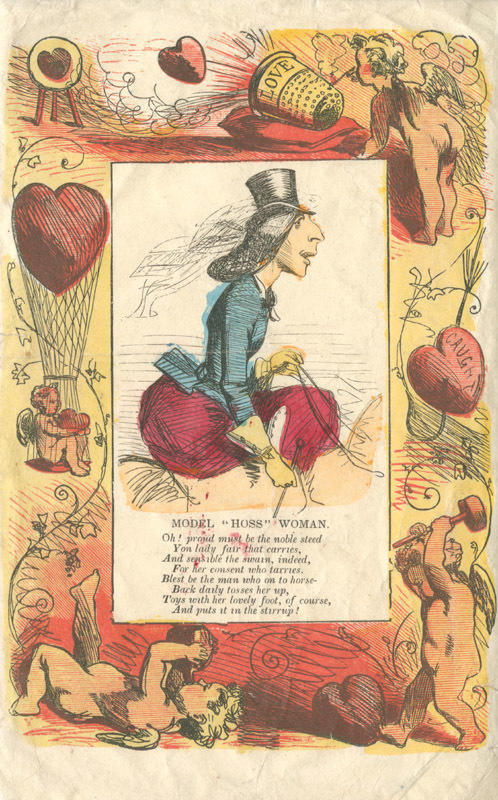 LOVE
CAUGHT
MODEL "HOSS" WOMAN.
Oh! proud must be the noble steed
Yon lady fair that carries,
And sensible the swain, indeed,
For her consent who tarries.
Blest be the man who on to horse-
Back daily tosses her up,
Toys with her lovely foot, of course,
And puts it in the stirrup!